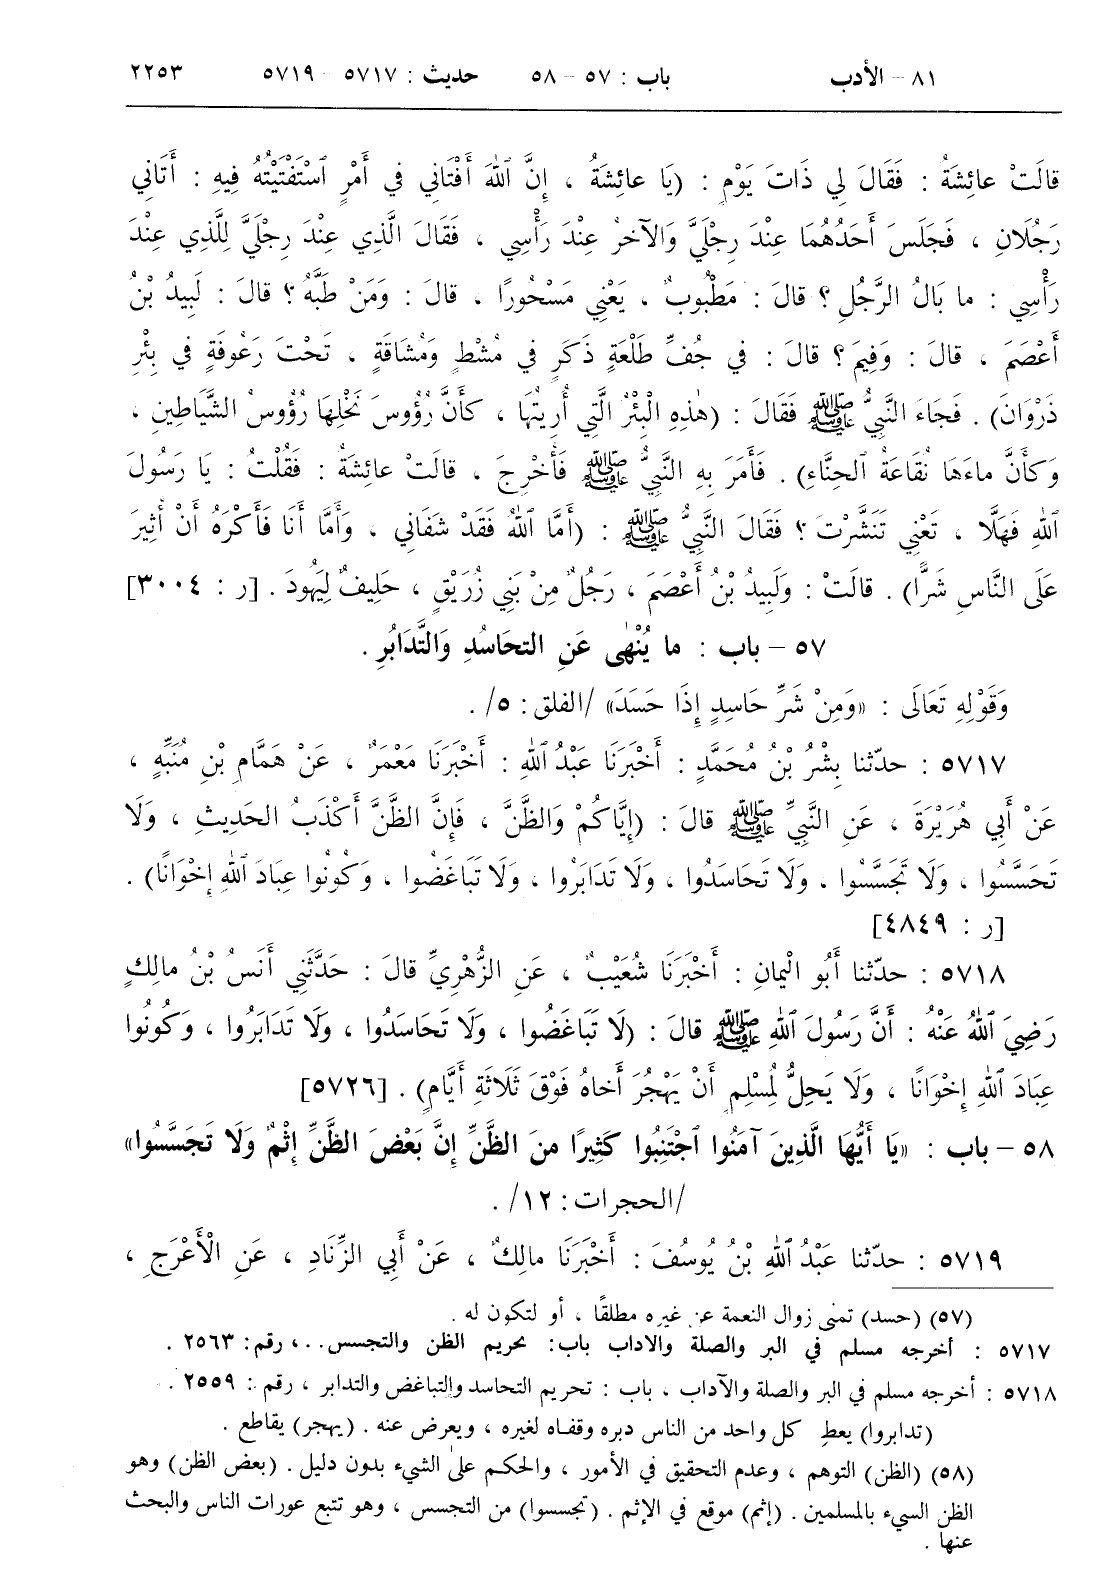 ٨١ – الأدب باب : ٥٧ – ٥٨ حديث : ٥٧١٧ – ٥٧١٩ ٢٢٥٣
قالَتْ عائِشَةُ : فَقَالَ لِي ذَاتَ يَوْمٍ : (يَا عائِشَةُ ، إِنَّ ٱللهَ أَفْتَانِي في أَمْرٍ ٱسْتَفْتَيْتُهُ فِيهِ : أَتَانِي
رَجُلَانِ ، فَجَلَسَ أَحَدُهُمَا عِنْدَ رِجْلَيَّ وَالآخَرُ عِنْدَ رَأْسِي ، فَقَالَ الَّذِي عِنْدَ رِجْلَيَّ لِلَّذِي عِنْدَ
رَأْسِي : ما بَالُ الرَّجُلِ ؟ قالَ : مَطْبُوبٌ ، يَعْنِي مَسْحُورًا ، قالَ : وَمَنْ طَبَّهُ ؟ قالَ : لَبِيدُ بْنُ
أَعْصَمَ ، قالَ : وَفِيمَ ؟ قالَ : في جُفِّ طَلْعَةٍ ذَكَرٍ في مُشْطٍ وَمُشَاقَةٍ ، تَحْتَ رَعُوفَةٍ في بِئْرِ
ذَرْوَانَ) . فَجَاءَ النَّبِيُّ ﷺ فَقَالَ : (هٰذِهِ الْبِئْرُ الَّتِي أُرِيتُهَا ، كَأَنَّ رُؤُوسَ نَخْلِهَا رُؤُوسُ الشَّيَاطِينِ ،
وَكَأَنَّ ماءَهَا نُقَاعَةُ ٱلحِنَّاءِ) . فَأَمَرَ بِهِ النَّبِيُّ ﷺ فَأُخْرِجَ ، قالَتْ عائِشَةُ : فَقُلْتُ : يَا رَسُولَ
ٱللهِ فَهَلَّا ، تَعْنِي تَنَشَّرْتَ ؟ فَقَالَ النَّبِيُّ ﷺ : (أَمَّا ٱللهُ فَقَدْ شَفَانِي ، وَأَمَّا أَنَا فَأَكْرَهُ أَنْ أُثِيرَ
عَلَى النَّاسِ شَرًّا) . قالَتْ : وَلَبِيدُ بْنُ أَعْصَمَ ، رَجُلٌ مِنْ بَنِي زُرَيْقٍ ، حَلِيفٌ لِيَهُودَ . [ر : ٣٠٠٤]
٥٧ – باب : ما يُنْهٰى عَنِ التحَاسُدِ وَالتَّدَابُرِ .
وَقَوْلِهِ تَعَالَى : «وَمِنْ شَرِّ حَاسِدٍ إِذَا حَسَدَ» /الفلق: ٥/ .
٥٧١٧ : حدّثنا بِشْرُ بْنُ مُحَمَّدٍ : أَخْبَرَنَا عَبْدُ ٱللهِ : أَخْبَرَنَا مَعْمَرٌ ، عَنْ هَمَّامِ بْنِ مُنَبِّهٍ ،
عَنْ أَبِي هُرَيْرَةَ ، عَنِ النَّبِيِّ ﷺ قالَ : (إِيَّاكُمْ وَالظَّنَّ ، فَإِنَّ الظَّنَّ أَكْذَبُ الحَدِيثِ ، وَلَا
تَحَسَّسُوا ، وَلَا تَجَسَّسُوا ، وَلَا تَحَاسَدُوا ، وَلَا تَدَابَرُوا ، وَلَا تَبَاغَضُوا ، وَكُونُوا عِبَادَ ٱللهِ إِخْوَانًا) .
[ر : ٤٨٤٩]
٥٧١٨ : حدّثنا أَبُو الْيَمانِ : أَخْبَرَنَا شُعَيْبٌ ، عَنِ الزُّهْرِيِّ قالَ : حَدَّثَنِي أَنَسُ بْنُ مالِكٍ
رَضِيَ ٱللهُ عَنْهُ : أَنَّ رَسُولَ ٱللهِ ﷺ قالَ : (لَا تَبَاغَضُوا ، وَلَا تَحَاسَدُوا ، وَلَا تَدَابَرُوا ، وَكُونُوا
عِبَادَ ٱللهِ إِخْوَانًا ، وَلَا يَحِلُّ لِمُسْلِمٍ أَنْ يَهْجُرَ أَخاهُ فَوْقَ ثَلَاثَةِ أَيَّامٍ) . [٥٧٢٦]
٥٨ – باب : «يَا أَيُّهَا الَّذِينَ آمَنُوا ٱجْتَنِبُوا كَثِيرًا مِنَ الظَّنِّ إِنَّ بَعْضَ الظَّنِّ إِثْمٌ وَلَا تَجَسَّسُوا»
/الحجرات: ١٢/ .
٥٧١٩ : حدّثنا عَبْدُ ٱللهِ بْنُ يُوسُفَ : أَخْبَرَنَا مالِكٌ ، عَنْ أَبِي الزِّنَادِ ، عَنِ الْأَعْرَجِ ،
(٥٧) (حسد) تمنى زوال النعمة عن غيره مطلقًا ، أو لتكون له .
٥٧١٧ : أخرجه مسلم في البر والصلة والاداب باب: تحريم الظن والتجسس..، رقم: ٢٥٦٣ .
٥٧١٨ : أخرجه مسلم في البر والصلة والآداب ، باب : تحريم التحاسد والتباغض والتدابر ، رقم : ٢٥٥٩ .
(تدابروا) يعطِ كل واحد من الناس دبره وقفاه لغيره ، ويعرض عنه . (يهجر) يقاطع .
(٥٨) (الظن) التوهم ، وعدم التحقيق في الأمور ، والحكم على الشيء بدون دليل . (بعض الظن) وهو
الظن السيء بالمسلمين . (إثم) موقع في الإثم . (تجسسوا) من التجسس ، وهو تتبع عورات الناس والبحث
عنها .